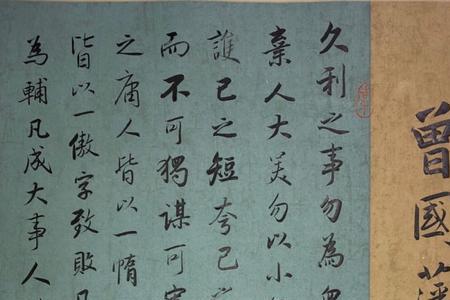 曾國藩
久利之事勿為眾
棄人大美勿以小
護己之短夸己
而不可獨謀可
之庸人皆以一惰
皆以一傲字致敗凡
為輔凡成大事人